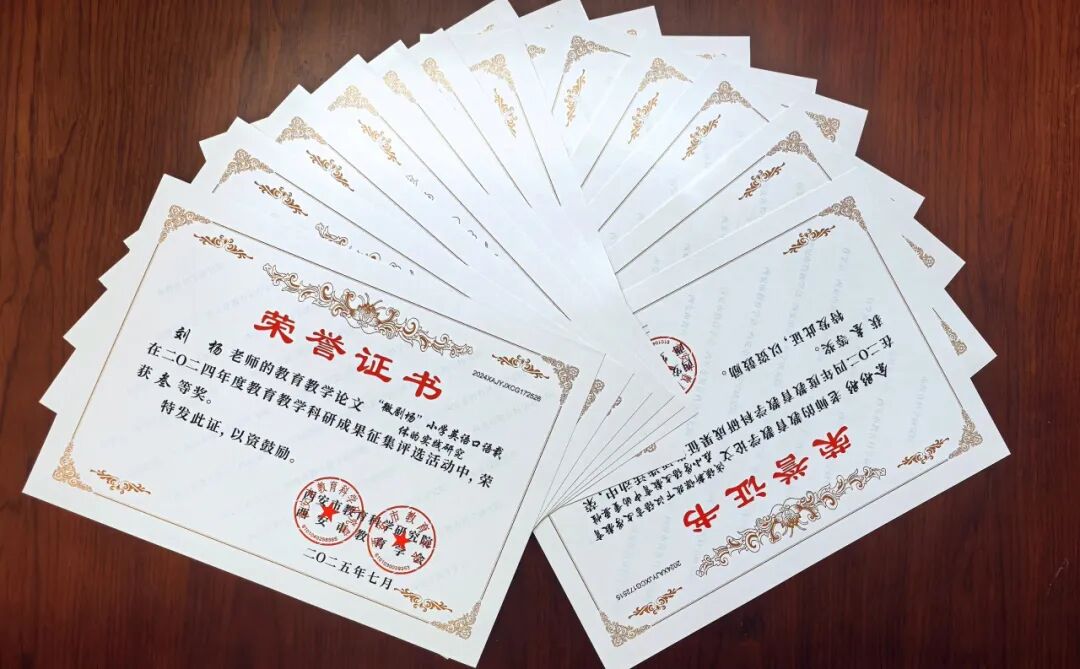 荣誉证书
2024XAJYJXCG172526
刘 杨 老师的教育教学论文 “微剧场”小学英语口语载
体的实践研究
在二〇二四年度教育教学科研成果征集评选活动中，荣
获叁等奖。
特发此证，以资鼓励。
西安市教育科学研究院
西安市教育学会
二〇二五年七月
2024XAJYJXCG172515
荣誉证书
老师的教育教学论文
在小学语文教育中的重要性
在二〇二四年度教育教学科研成果征
获叁等奖。
特发此证 以资鼓励。